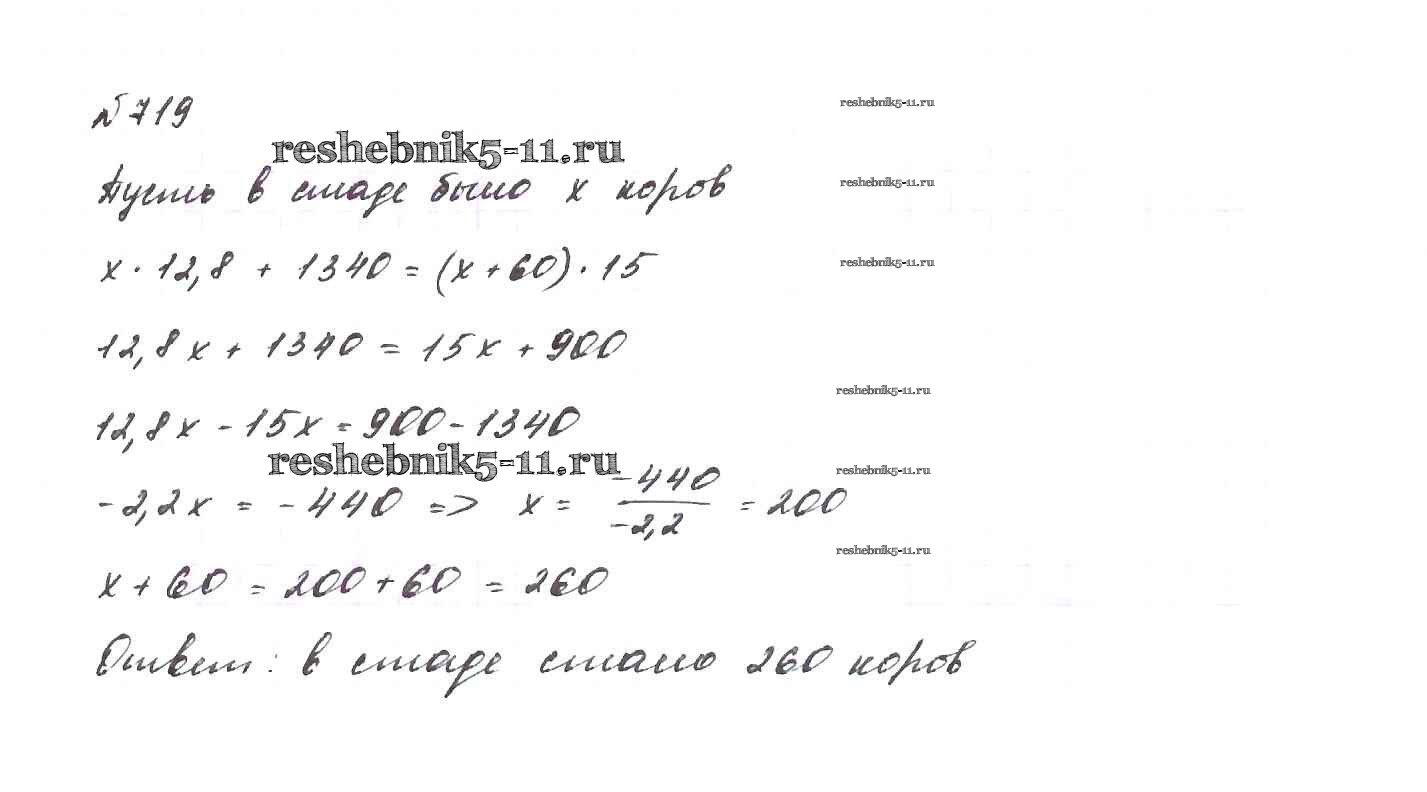 №719
reshebnik5-11.ru
reshebnik5-11.ru
Пусть в стаде было x коров
reshebnik5-11.ru
x · 12,8 + 1340 = (x + 60) · 15
reshebnik5-11.ru
12,8x + 1340 = 15x + 900
reshebnik5-11.ru
12,8x - 15x = 900 - 1340
reshebnik5-11.ru
reshebnik5-11.ru
-2,2x = -440 => x = -440/-2,2 = 200
reshebnik5-11.ru
x + 60 = 200 + 60 = 260
Ответ: в стаде стало 260 коров